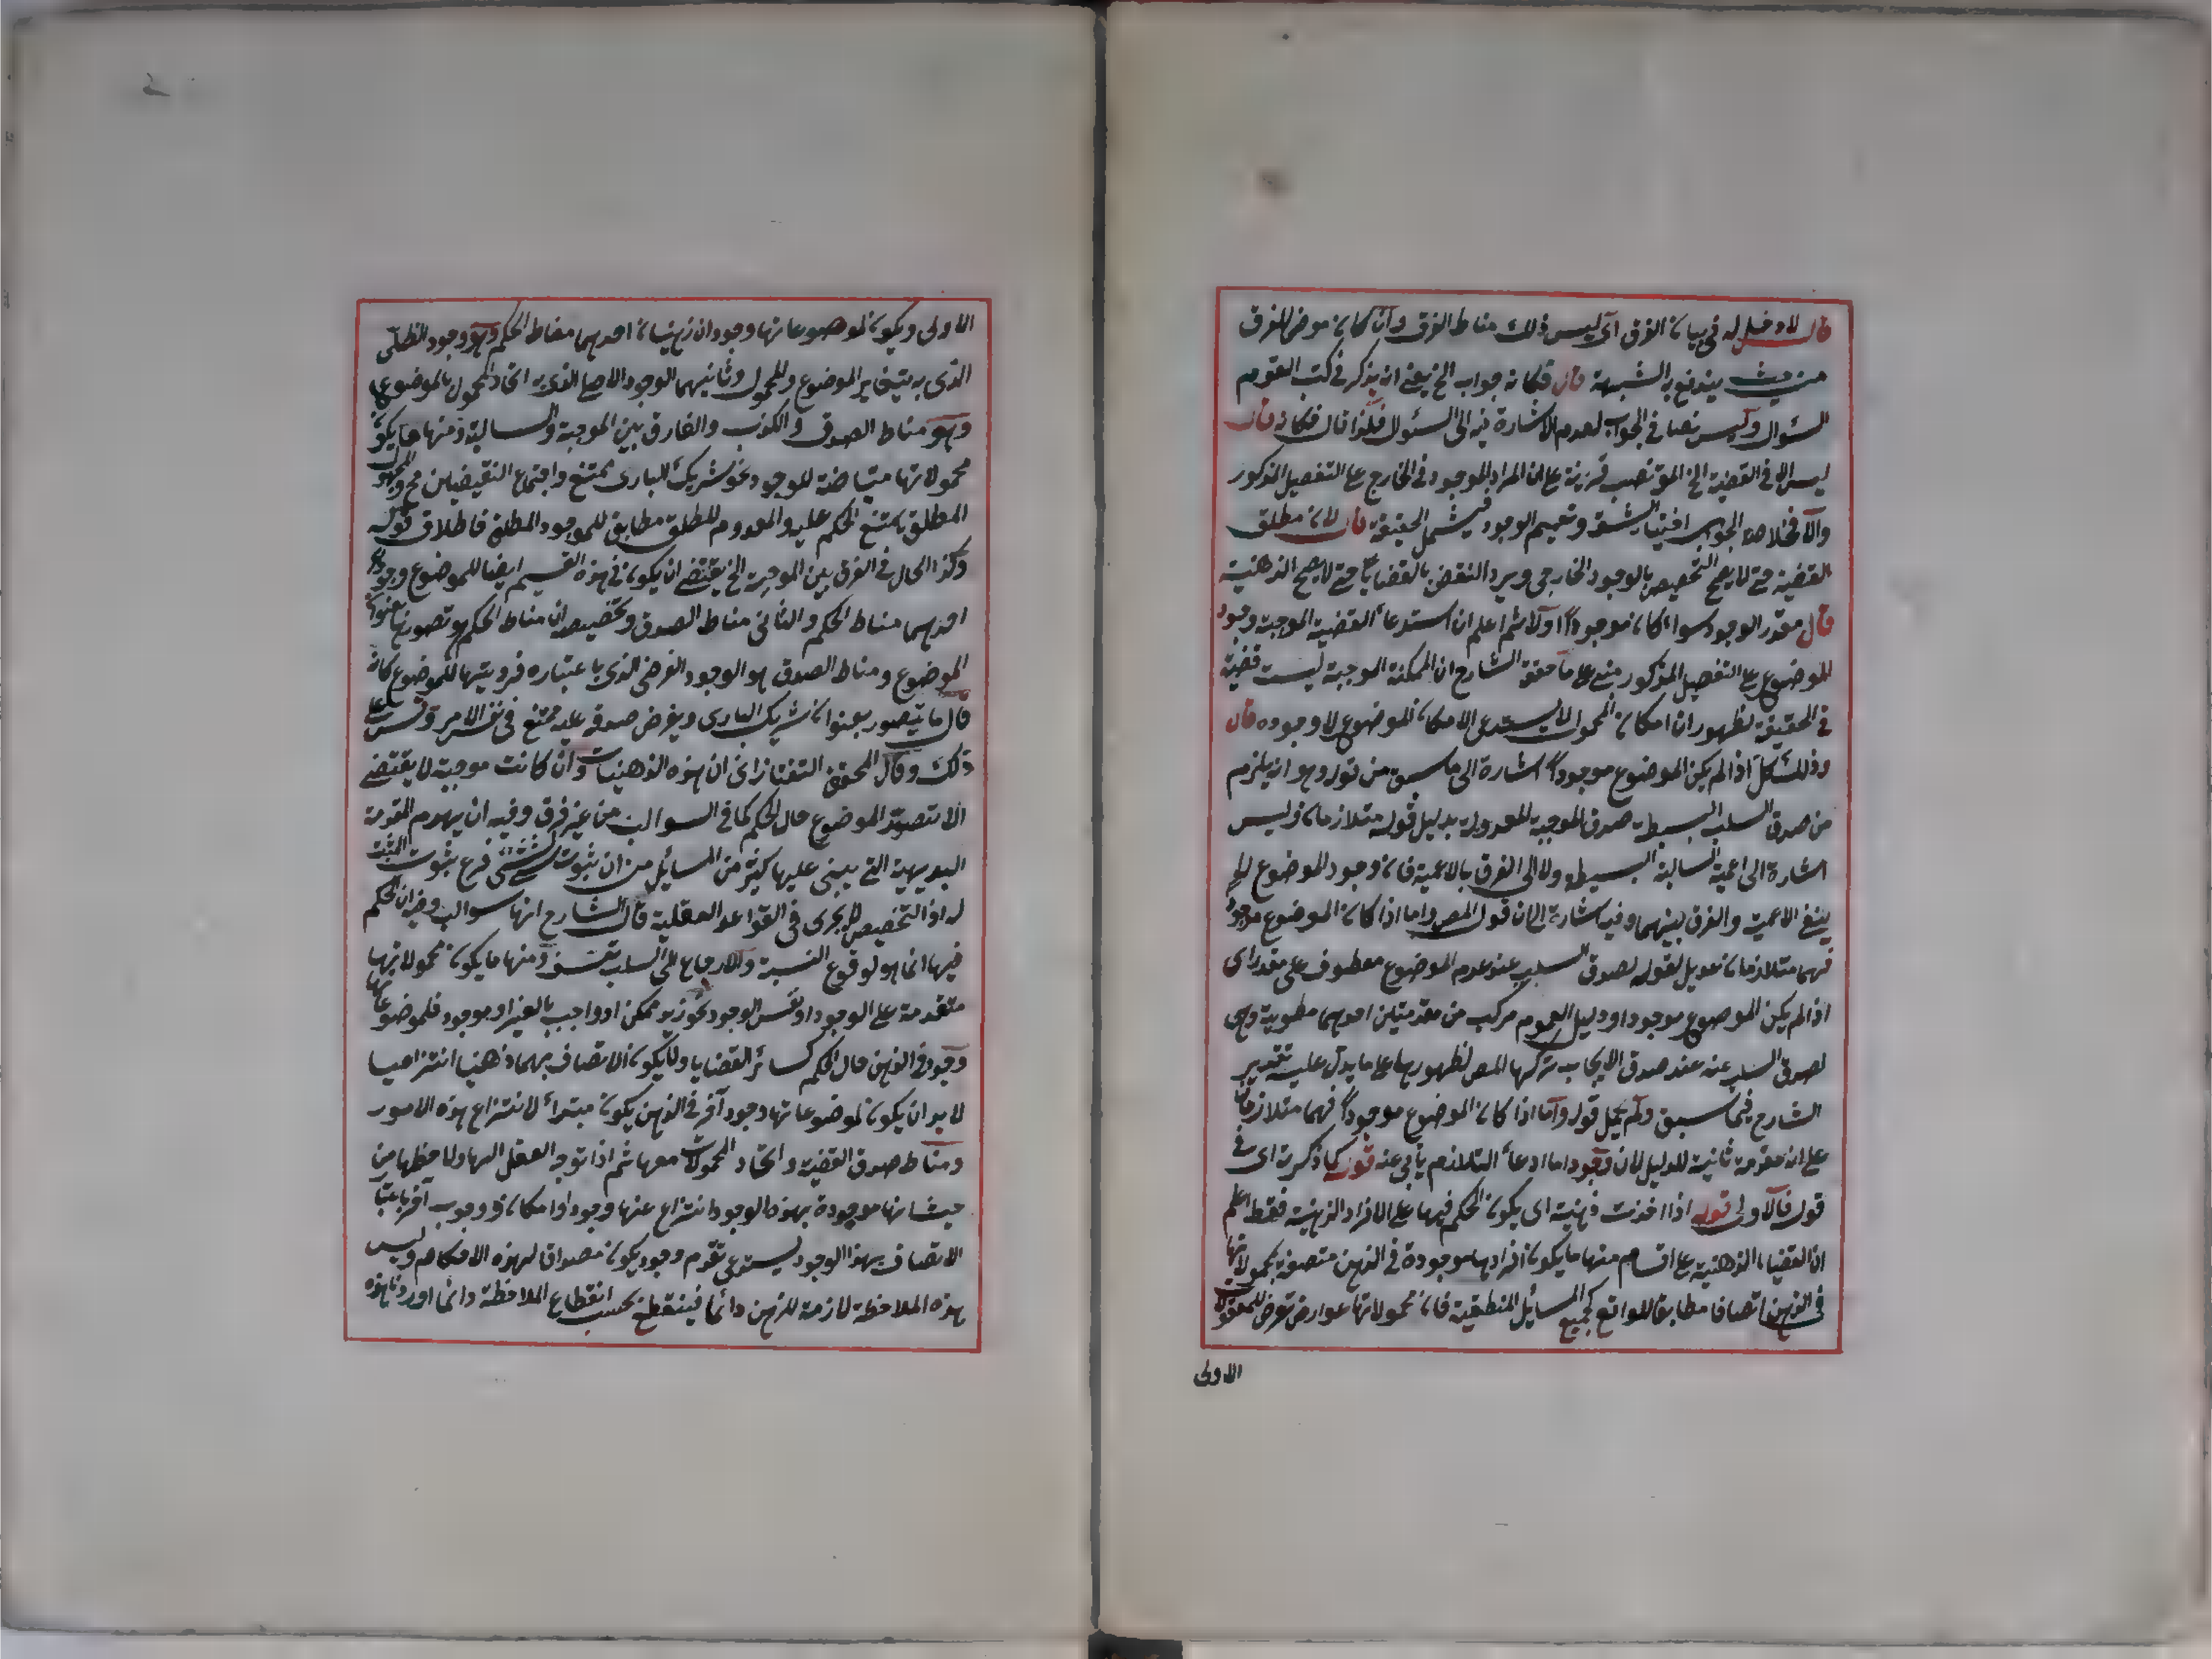 قال لا دخل له في بيان الفرق اى ليس ذلك مناط الفرق وان كان موضحا للفرق
من حيث يندفع به الشبهة قال فكانه جواب الخ يعنى انه يذكر في كتب القوم
السئوال وليس نصا في الجواب لعدم الاشارة فيه الى السئوال فلذا قال فكانه قال
ليس الا في القضية الخ المق نصب قرينة على ان المراد بالموجود في الخارج على التفصيل المذكور
والا فخلاصة الجواب اختيار الشق وتعميم الوجود فيشمل الحقيقة قال لان مطلق
القضية حتى لا يصح التخصيص بالوجود الخارجى ويرد النقض بالقضايا حتى لا يصح الذهنية
قال مقدر الوجود سواء كان موجودا اولا ثم اعلم ان استدعاء القضية الموجبة وجود
الموضوع على التفصيل المذكور مبنى على ما حققه الشارح ان الممكنة الموجبة ليست قضية
في الحقيقة لظهور ان امكان المحمول لا يستدعى الا امكان الموضوع لا وجوده قال
وذلك كل اذا لم يكن الموضوع موجودا اشارة الى ما سبق من قوله وهو انه يلزم
من صدق السلب البسيطة صدق الموجبة المعدولة بدليل قوله متلازمان وليس
اشارة الى اعمية السالبة البسيطة ولا الى الفرق بالاعمية فان وجود الموضوع لا
ينفي الاعمية والفرق بينهما وفيه اشارة الى ان قول المص واما اذا كان الموضوع موجودا
فهما متلازمان عديل لقوله لصدق السلب عند عدم الموضوع معطوف على مقدر اى
اذا لم يكن الموضوع موجودا ودليل العموم مركب من مقدمتين احديهما مطوية وهى
لصدق السلب عنه عند صدق الايجاب تركها المص لظهورها على ما يدل عليه تقرير
الشارح فيما سبق ولم يحمل قوله واما اذا كان الموضوع موجودا فهما متلازمان
على انه مقدمة ثانية للدليل لان وجود اما ادعاء التلازم يأبى عنه قوله كما ذكرته اى في
قوله فالاولى قوله اذا اخذت ذهنية اى يكون الحكم فيها على الافراد الذهنية فقط اعلم
ان القضايا الذهنية على اقسام منها ما يكون افرادها موجودة في الذهن متصفة بمحمولاتها
في الذهن اتصافا مطابقا للواقع كجميع المسائل المنطقية فان محمولاتها عوارض تعرض للمعقولات
الاولى
الاولى ويكون لموضوعاتها وجودان ذهنيان احدهما مناط الحكم وهو وجود الظلى
الذى به يتغاير الموضوع والمحمول وثانيهما الوجود الاصلى الذى به اتحاد المحمول بالموضوع
وهو مناط الصدق والكذب والفارق بين الموجبة والسالبة ومنها ما يكون
محمولاتها منافية للوجود نحو شريك البارى ممتنع واجتماع النقيضين مح والمجهول
المطلق يمتنع الحكم عليه والمعدوم المطلق مطابق للموجود المطلق فاطلاق قوله
وكذا الحال في الفرق بين الموجبة الخ يقتضى ان يكون في هذه القسم ايضا للموضوع وجودان
احدهما مناط الحكم والثانى مناط الصدق وتخصيصه ان مناط الحكم هو تصوره بعنوان
الموضوع ومناط الصدق هو الوجود الفرضى الذى باعتباره فرديتها للموضوع كانه
قال ما يتصور بعنوان شريك البارى ويفرض صدقه عليه ممتنع في نفس الامر وقس على
ذلك وقال المحقق التفتازانى ان هذه الذهنيات وان كانت موجبة لا يقتضى
الا تصور الموضوع حال الحكم كما في السوالب من غير فرق وفيه انه يهدم المقدمة
البديهية التى يبنى عليها كثير من المسائل من ان ثبوت الشئ لشئ فرع ثبوت المثبت
له اذ التخصيص لا يجرى في القواعد العقلية قال الشارح انها سوالب وفيه ان الحكم
فيها انما هو لوقوع النسبة والارجاع الى السلب تعسف ومنها ما يكون محمولاتها
متقدمة على الوجود او نفس الوجود نحو زيد ممكن او واجب بالغير او موجود فلموضوعاتها
وجود في الذهن حال الحكم كسائر القضايا ولا يكون الاتصاف بهما ذهنيا انتزاعيا
لا بد ان يكون لموضوعاتها وجود آخر في الذهن يكون مبتدأ لانتزاع هذه الامور
ومناط صدق القضية واتحاد المحمولات معها ثم اذا توجه العقل اليها ولاحظها من
حيث انها موجودة بهذا الوجود انتزع عنها وجودا وامكانا ووجوب آخر باعتبار
الاتصاف بهذا الوجود يستدعى تقدم وجود يكون مصداقا لهذه الاحكام وليس
هذه الملاحظة لازمة للذهن دائما فينقطع بحسب انقطاع الملاحظة دائما اوردنا هذه